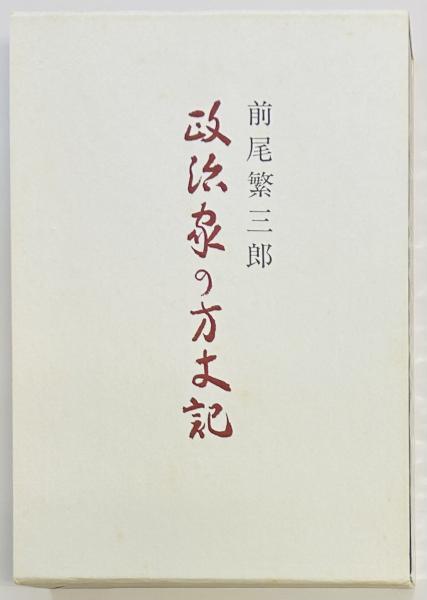 前尾繁三郎
政治家の方丈記